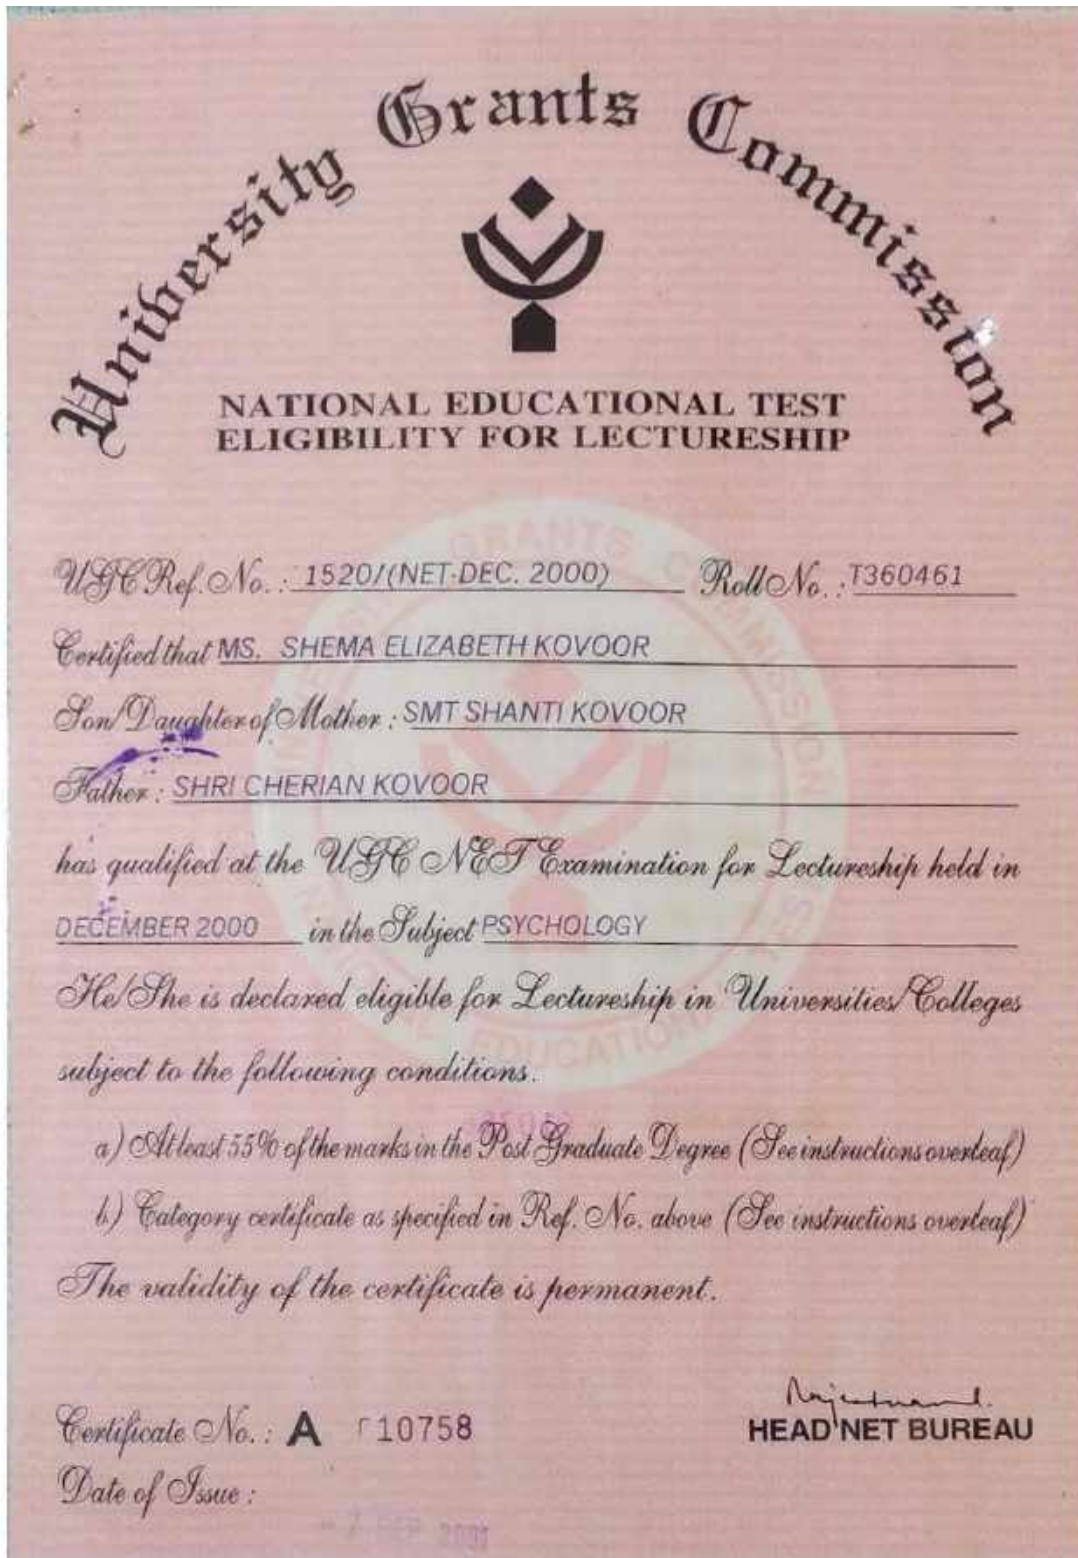 University Grants Commission
NATIONAL EDUCATIONAL TEST
ELIGIBILITY FOR LECTURESHIP
UGC Ref. No. : 1520/(NET-DEC. 2000) Roll No. : T360461
Certified that MS. SHEMA ELIZABETH KOVOOR
Son/Daughter of Mother : SMT SHANTI KOVOOR
Father : SHRI CHERIAN KOVOOR
has qualified at the UGC NET Examination for Lectureship held in
DECEMBER 2000 in the Subject PSYCHOLOGY
He/She is declared eligible for Lectureship in Universities/Colleges
subject to the following conditions.
a) At least 55% of the marks in the Post Graduate Degree (See instructions overleaf)
b) Category certificate as specified in Ref. No. above (See instructions overleaf)
The validity of the certificate is permanent.
Certificate No. : A 10758
HEAD NET BUREAU
Date of Issue :